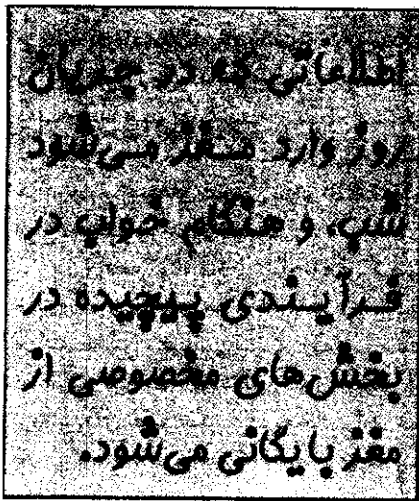 اطلاعاتی که در جریان
روز وارد مغز می‌شود
شب، و هنگام خواب در
فرآیندی پیچیده در
بخش‌های مخصوصی از
مغز بایگانی می‌شود.